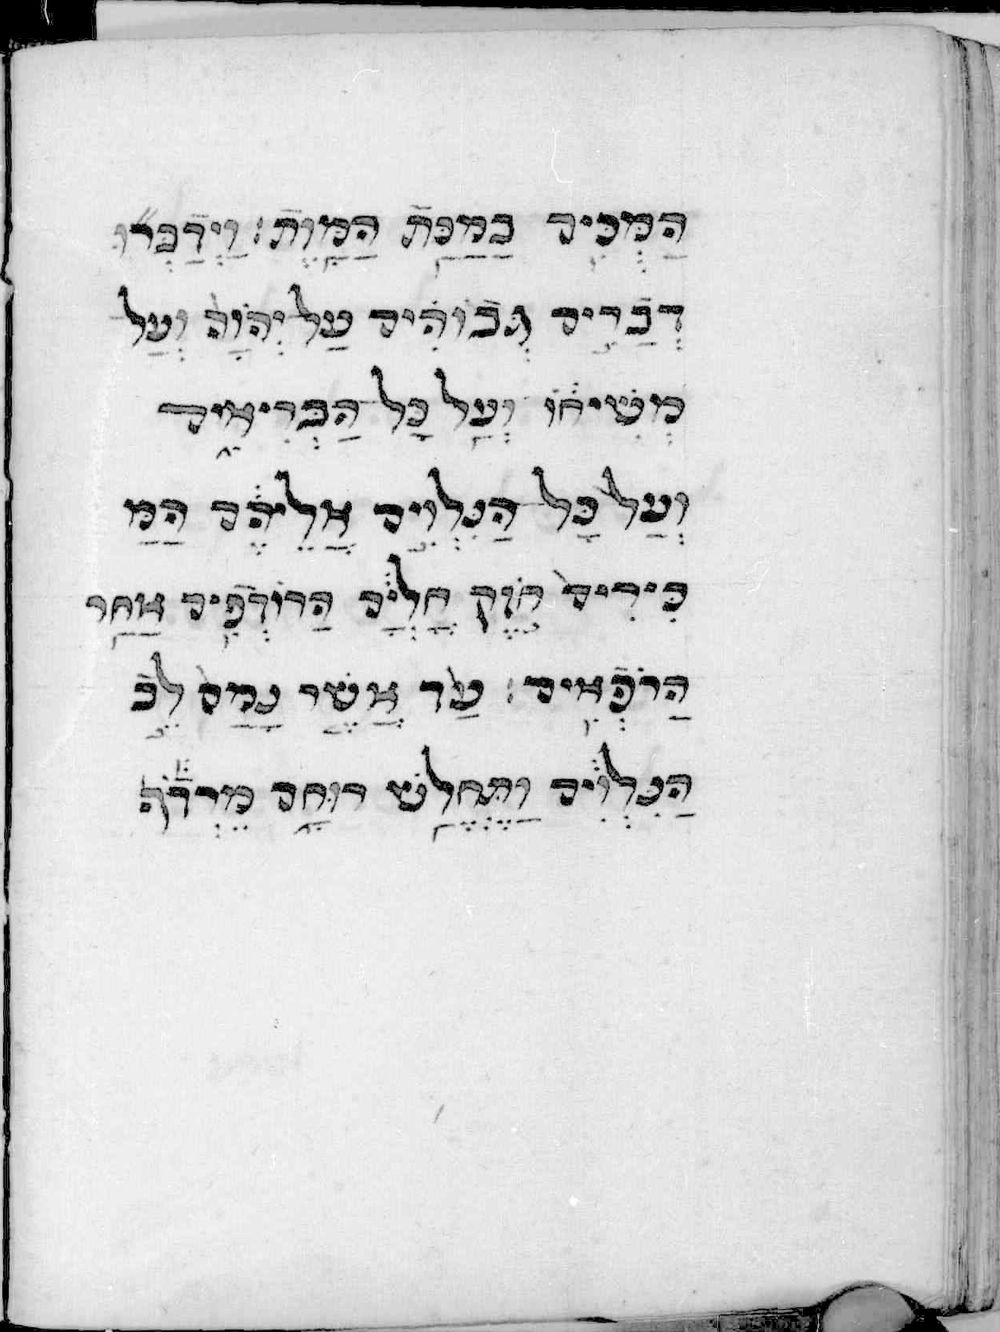 הַמְּכִים בַּמַּכַּת הַמָּוֶת׃ וַיְדַבְּרוּ
דְּבָרִים גְּבוֹהִים עַל יְהוָה וְעַל
מְשִׁיחוֹ וְעַל כָּל הַבְּרִיאִים
וְעַל כָּל הַנִּלְוִים אֲלֵיהֶם הַמַּ
כִּירִים חֹזֶק חֳלָיִם הַרוֹדְפִים אַחַר
הַרֹפְאִים׃ עַד אֲשֶׁר נָמֵס לֵב
הַנִּלְוִים וַתֶּחֱלַשׁ רוּחָם